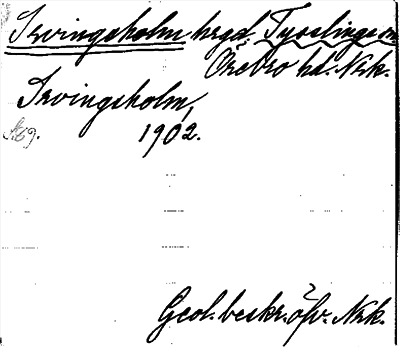 Irvingsholm hrgd. Tysslinge sn
Örebro hd. Nrk.
Irvingsholm,
1902.
Geol. beskr. öfv. Nrk.